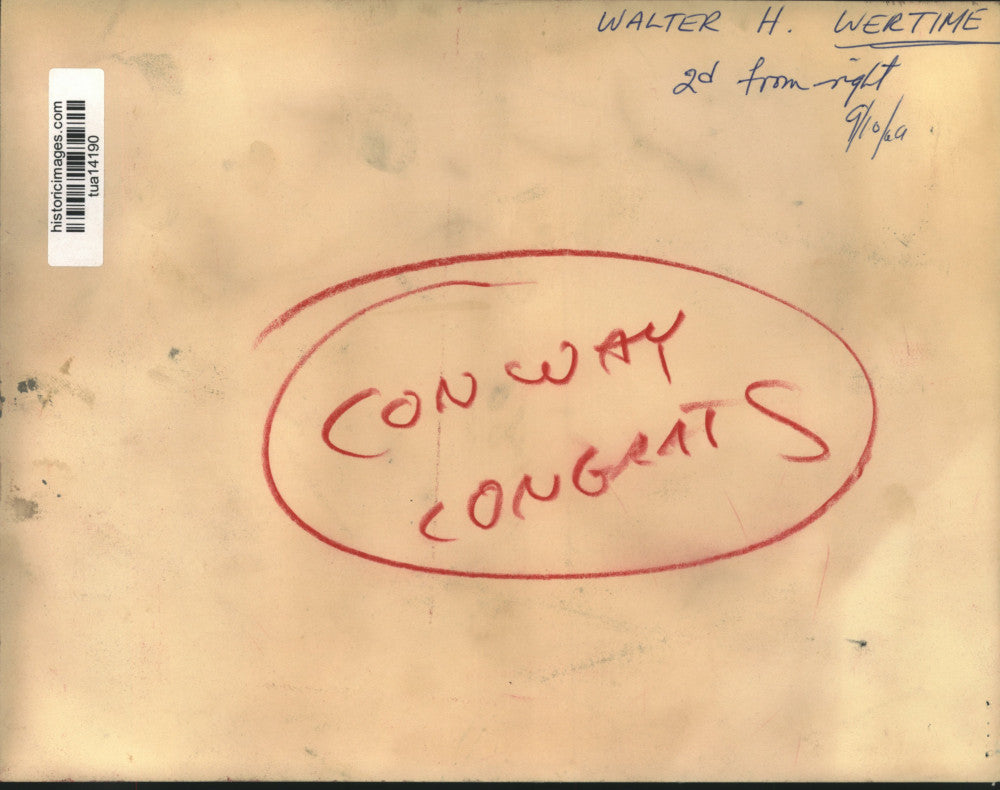 WALTER H. WERTIME
2d from right
9/10/69
historicimages.com
tua14190
CONWAY
CONGRATS